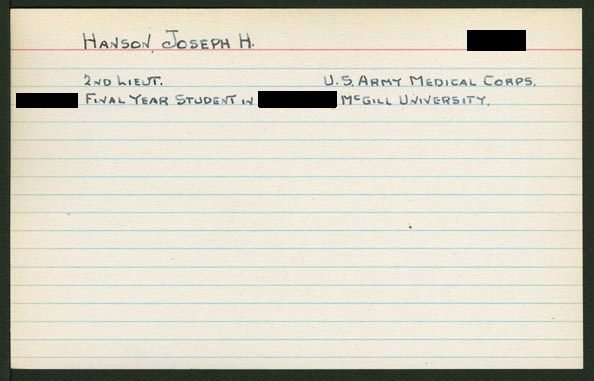 HANSON, JOSEPH H.
2ND LIEUT. U.S. ARMY MEDICAL CORPS.
FINAL YEAR STUDENT IN McGILL UNIVERSITY.